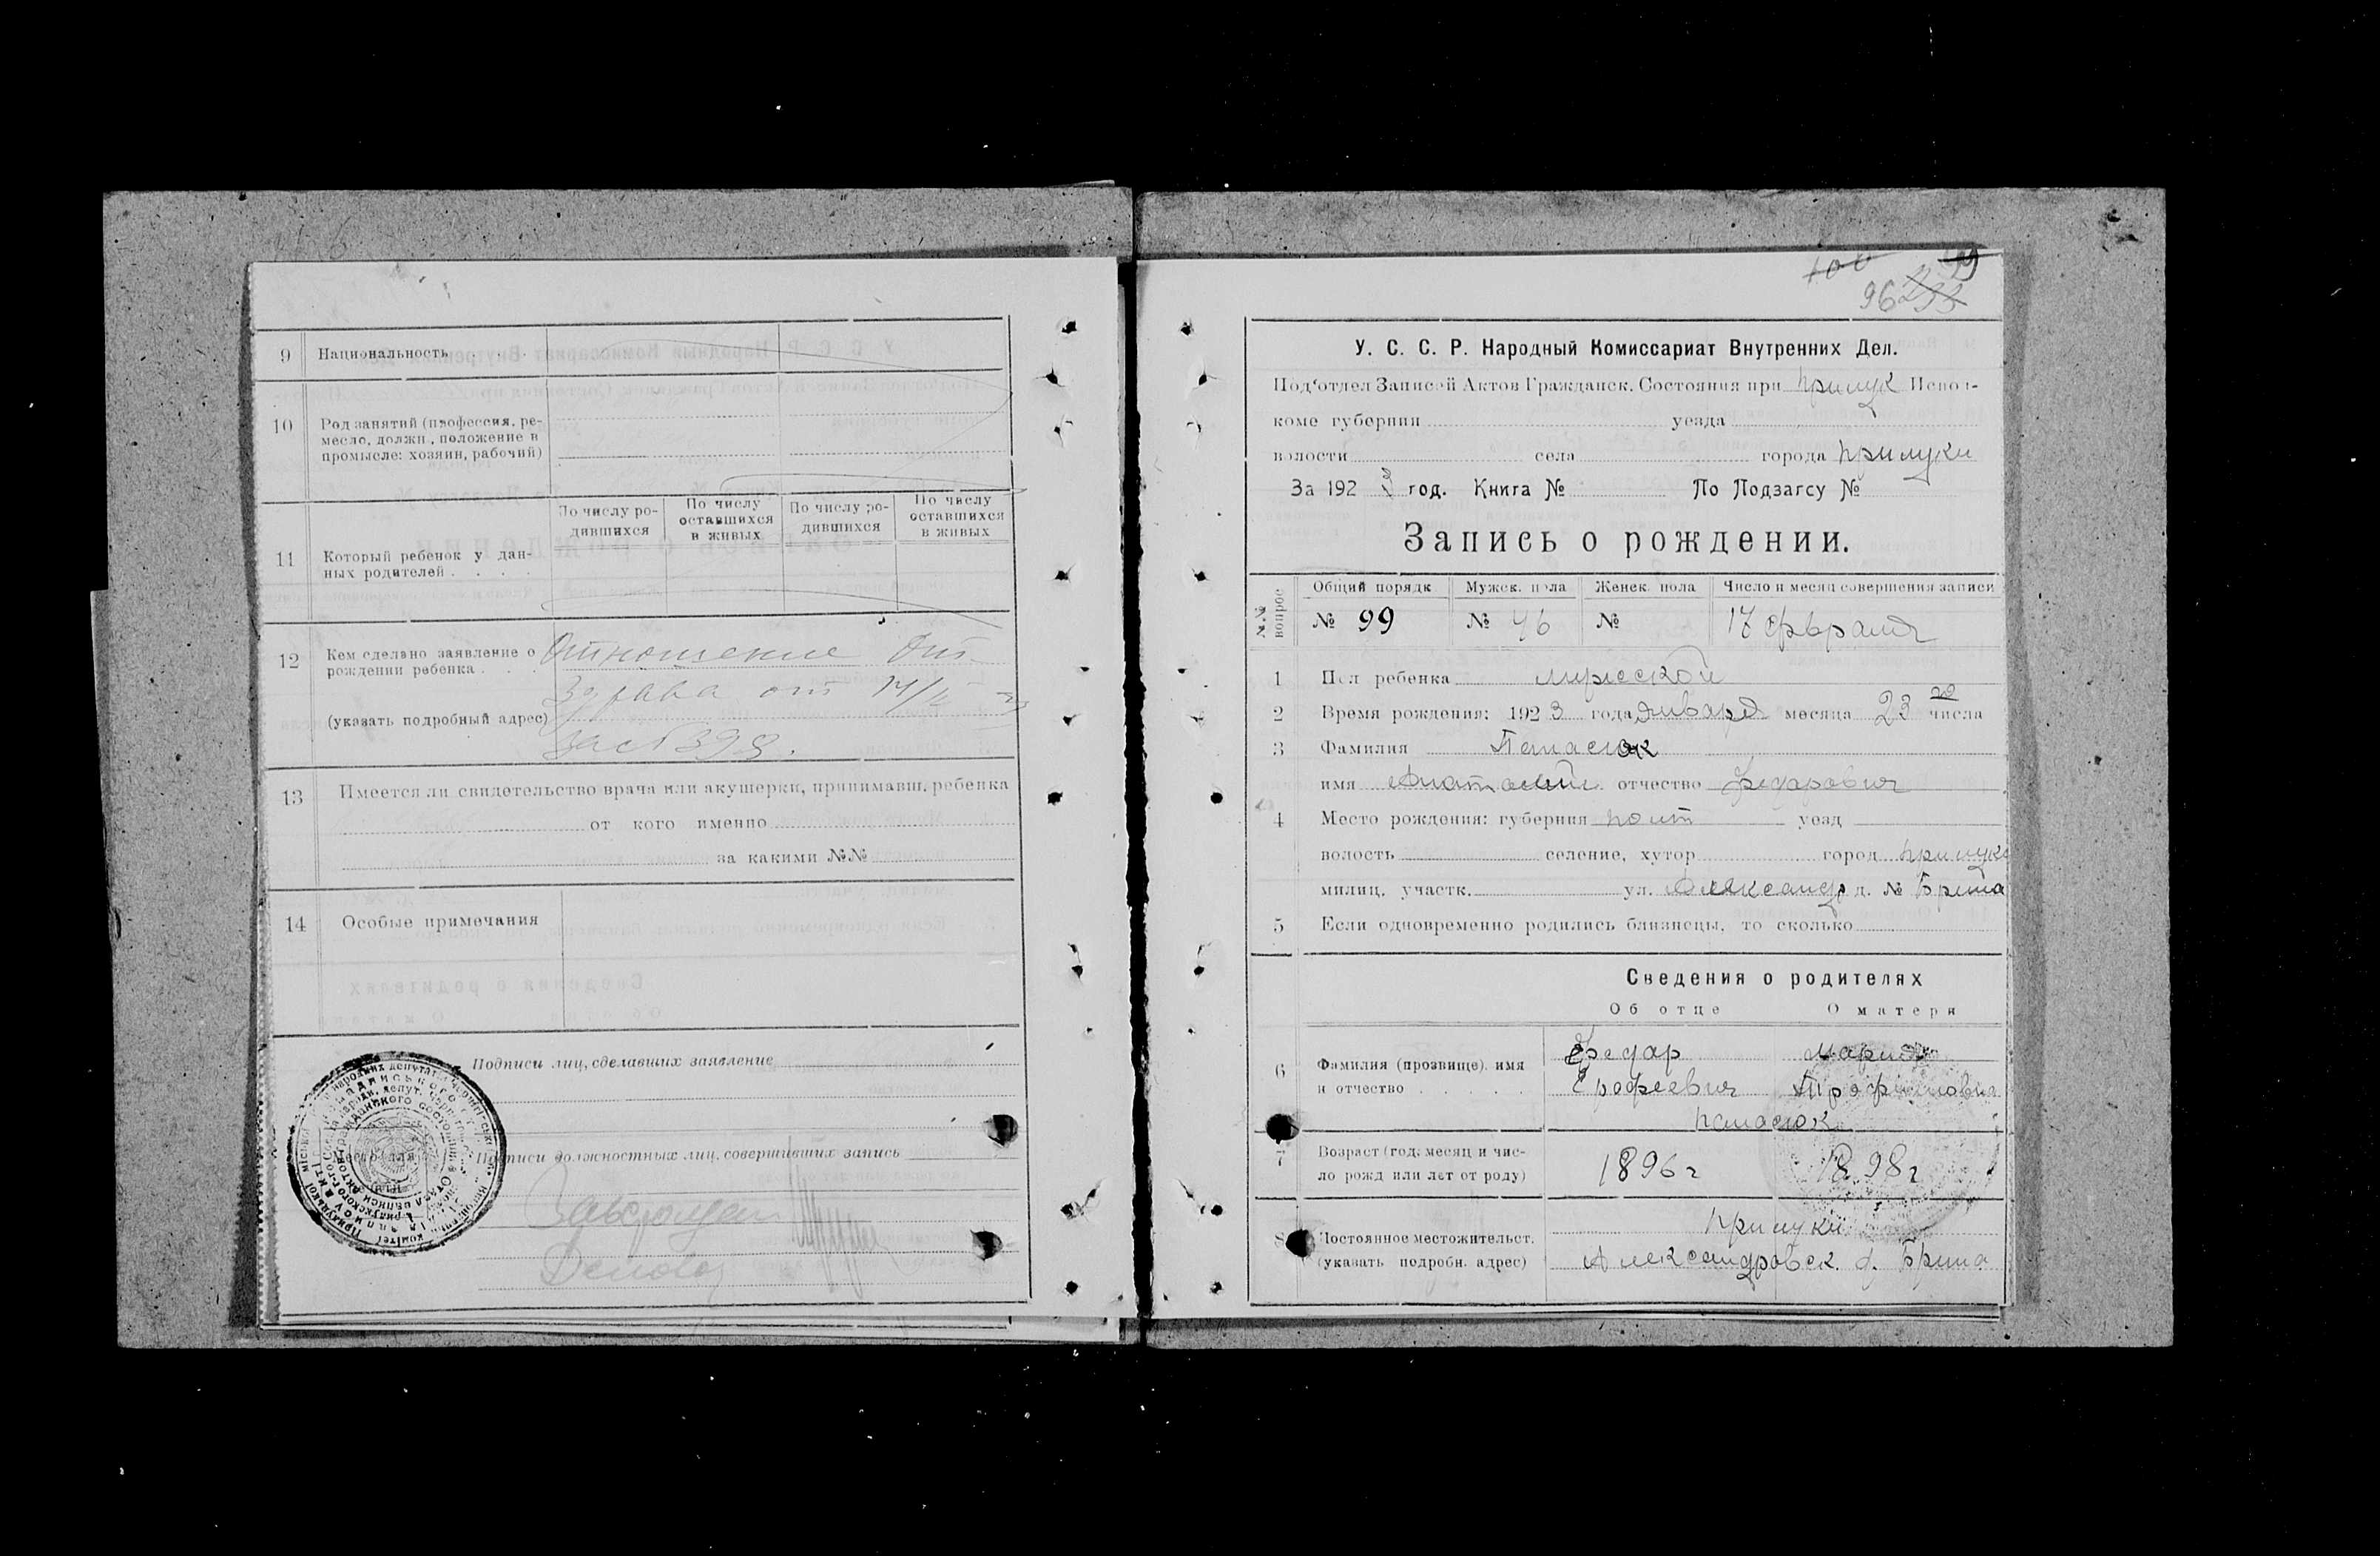 9 Национальность
10 Род занятий (профессия, ре-
месло, должн., положение в
промысле: хозяин, рабочий)
По числу ро-
дившихся
По числу
оставшихся
в живых
По числу ро-
дившихся
По числу
оставшихся
в живых
11 Который ребенок у дан-
ных родителей . . . .
12 Кем сделано заявление о
рождении ребенка . . .
(указать подробный адрес)
Отношение От
Здрава от 14/II 23
за № 398.
13 Имеется ли свидетельство врача или акушерки, принимавш. ребенка
от кого именно
за какими №№
14 Особые примечания
Подписи лиц, сделавших заявление
Подписи должностных лиц, совершивших запись
Завгрждан
100 99
96 233
У. С. С. Р. Народный Комиссариат Внутренних Дел.
Под'отдел Записей Актов Гражданск. Состояния при Прилук Испол-
коме губернии уезда
волости села города Прилуки
За 192 3 год. Книга № По Подзагсу №
Запись о рождении.
№№ вопрос
Общий порядк Мужск. пола Женск. пола Число и месяц совершения записи
№ 99 № 46 № 17 февраля
1 Пол ребенка мужской
2 Время рождения: 1923 года Января месяца 23 го числа
3 Фамилия Панасюк
имя Анатолий отчество Федарович
4 Место рождения: губерния Полт уезд
волость селение, хутор город Прилуки
милиц. участк. ул. Александр д. № Брита
5 Если одновременно родились близнецы, то сколько
Сведения о родителях
Об отце О матери
6 Фамилия (прозвище), имя
и отчество . . . . .
Федар Мария
Ерофеевич Трофимовна
Панасюк
7 Возраст (год, месяц и чис-
ло рожд или лет от роду)
1896 г 1898 г
8 Постоянное местожительст.
(указать подробн. адрес)
Прилуки
Александровск. д. Брита